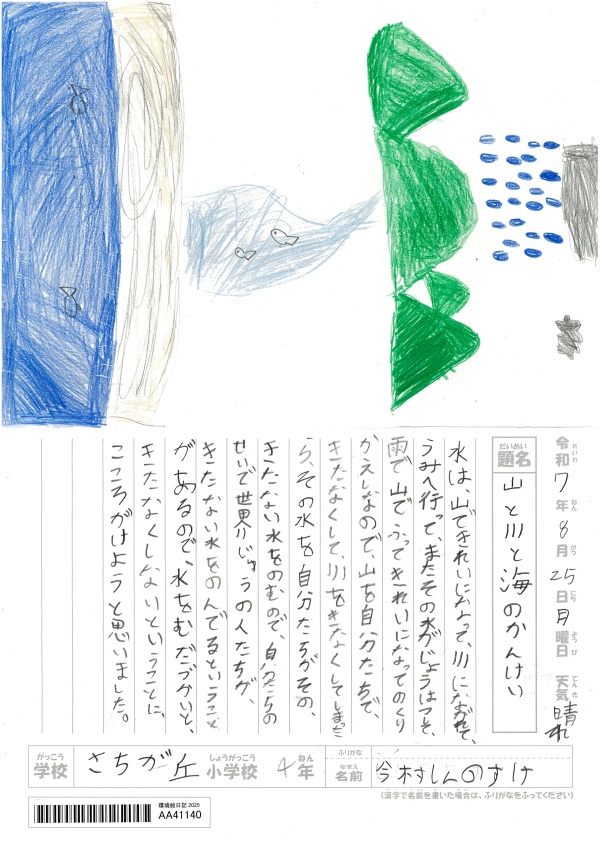 令和7年8月25日月曜日 天気 晴れ
れいわ ねん がつ にち ようび てんき
だいめい
題名 山と川と海のかんけい
水は、山できれいになって、川にながれて、
うみへ行って、またその水がじょうはつして、
雨で山でふってきれいになってのくり
かえしなので、山を自分たちで、
きたなくして、川をきたなくしてしまった
ら、その水を自分たちがその、
きたない水をのむので、自分たちの
せいで世界じゅうの人たちが、
きたない水をのんでるということ
があるので、水をむだづかいと、
きたなくしないということに、
こころがけようと思いました。
がっこう しょうがっこう ねん ふりがな
学校 さちが丘 小学校 4年 名前 今村しんのすけ
なまえ
(漢字で名前を書いた場合は、ふりがなをふってください)
環境絵日記2025
AA41140